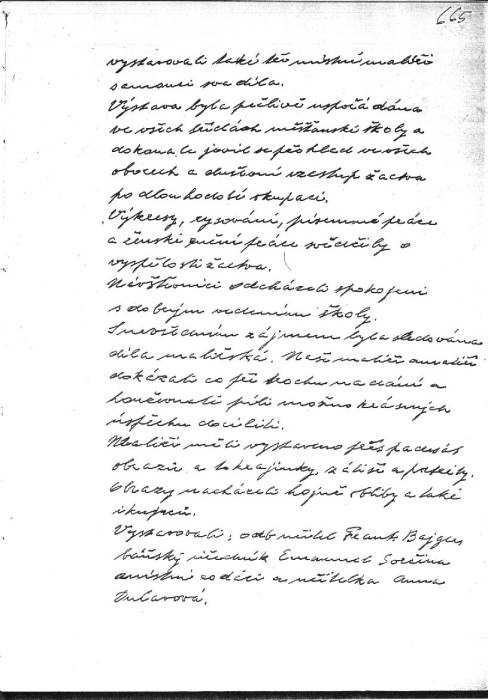 665
vystavovali také tři místní malíři
samouci svá díla.
Výstava byla pečlivě uspořádána
ve všech třídách měšťanské školy a
dokonale jevil se přehled ve všech
oborech a duševní vzestup žactva
po dlouhodobé okupaci.
Výkresy, rysování, písemné práce
a ženské ruční práce svědčily o
vyspělosti žactva.
Návštěvníci odcházeli spokojeni
s dobrým vedením školy.
S nevšedním zájmem byla sledována
díla malířská. Naši malíři amatéři
dokázali co při trochu nadání a
houževnaté píli možno krásných
úspěchů docíliti.
Malíři měli vystaveno přes padesát
obrazů a to krajinky, zátiší a portréty.
Obrazy nacházeli hojně obliby a také
i kupců.
Vystavovali; odb. učitel Frant. Bajger
báňský úředník Emanuel
a místní rodáci a učitelka Anna